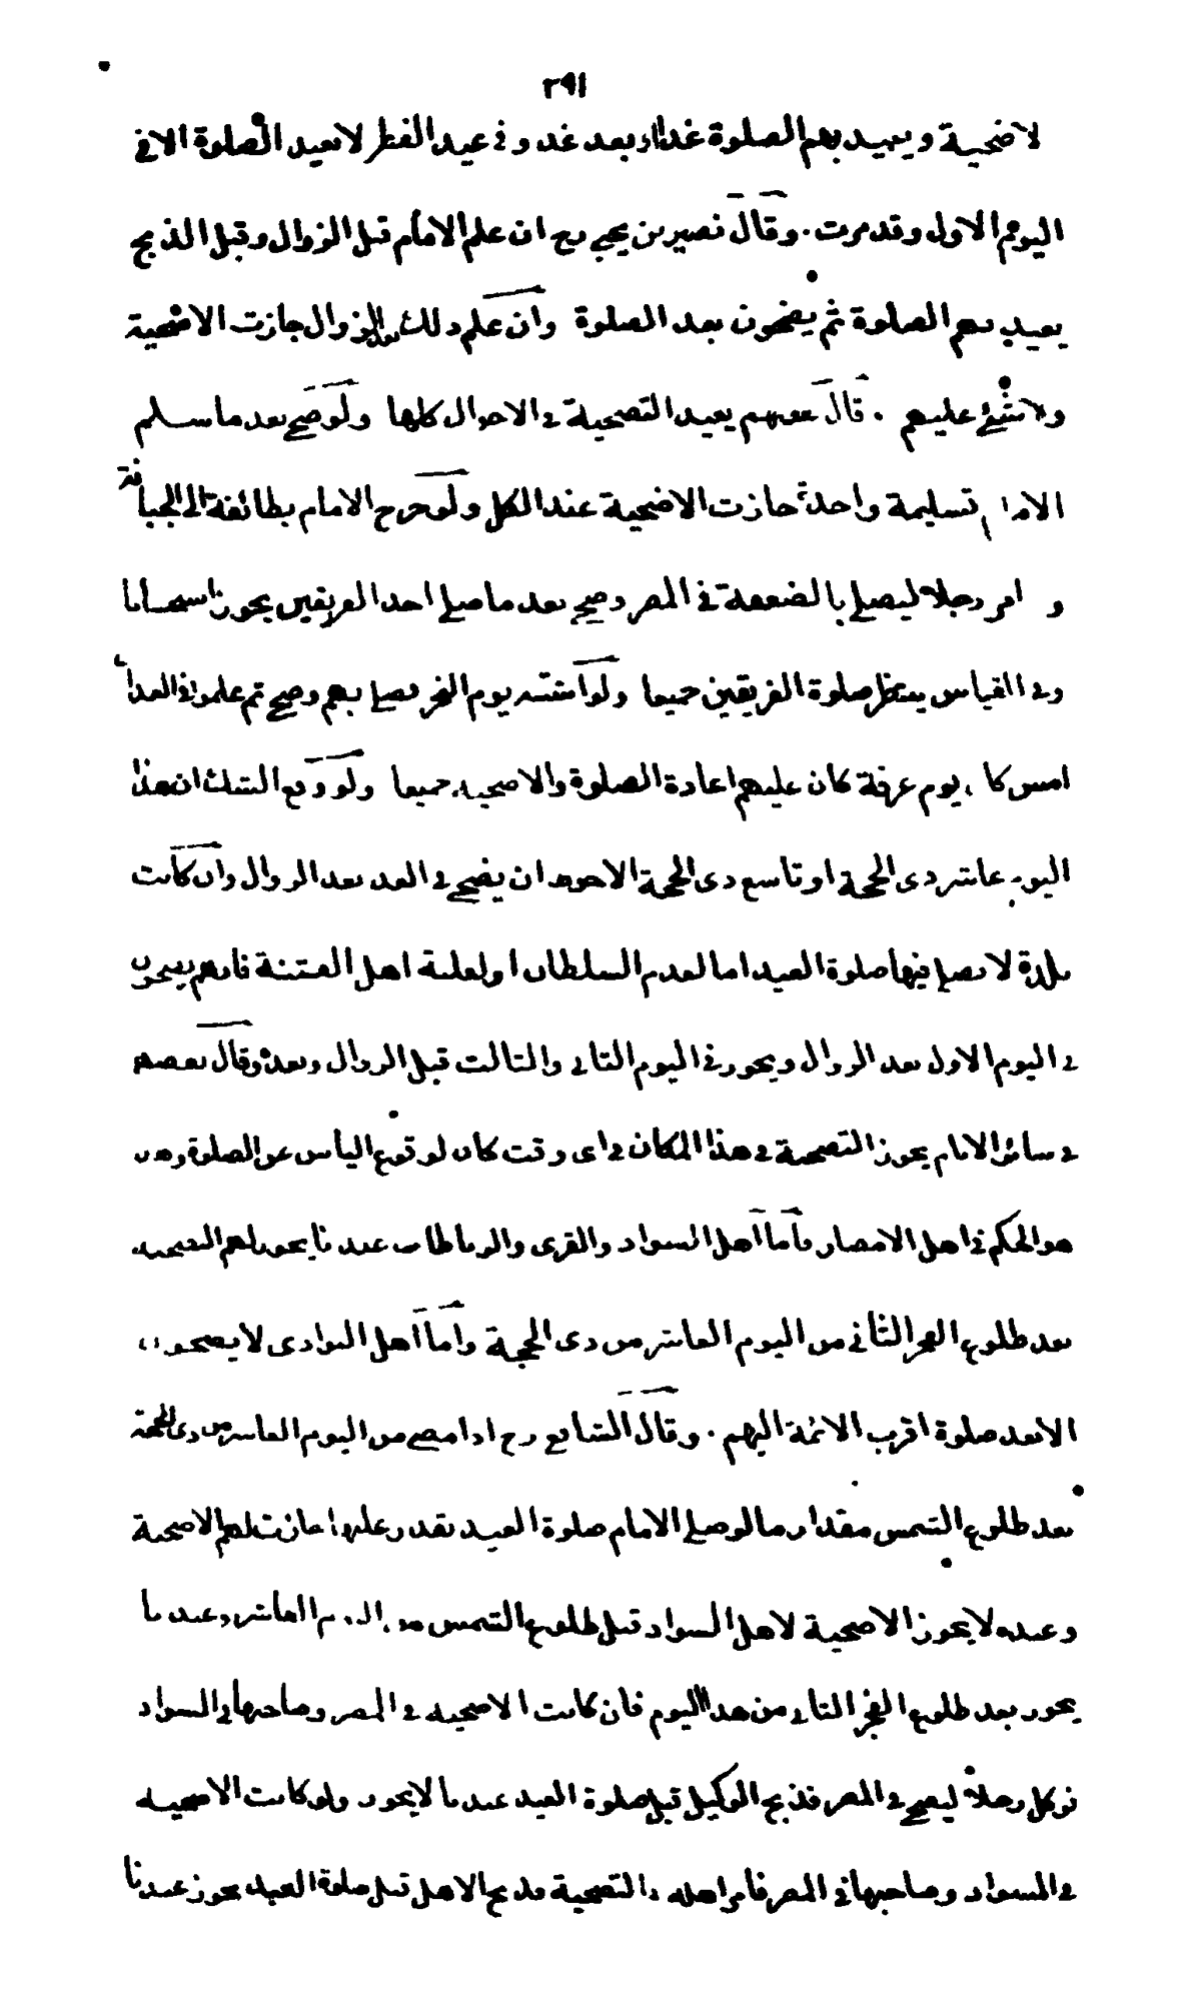 ٢٩١
لاضحية ويعيد بهم الصلوة غدا او بعد غد وفي عيد الفطر لا تعيد الصلوة الا في
اليوم الاول وقد مرت . وقال نصير بن يحيى رح ان علم الامام قبل الزوال وقبل الذبح
يعيد بهم الصلوة ثم يضحون بعد الصلوة وان علم ذلك بعد الزوال جازت الاضحية
ولا شئ عليهم . قال بعضهم يعيد التضحية في الاحوال كلها ولو ضحى بعد ما سلم
الامام تسليمة واحدة جازت الاضحية عند الكل ولو خرج الامام بطائفة الى الجبانة
و امر رجلا ليصلي بالضعفة في المصر وضحى بعد ما صلى احد الفريقين يجوز استحسانا
وفي القياس ينتظر صلوة الفريقين جميعا ولو اشتبه يوم النحر فصلى بهم وضحى ثم علموا في الغد ان
امس كان يوم عرفة كان عليهم اعادة الصلوة والاضحية جميعا ولو وقع الشك ان هذا
اليوم عاشر ذى الحجة او تاسع ذى الحجة الاحوط ان يضحى في الغد بعد الزوال وان كانت
بلدة لا يصلى فيها صلوة العيد اما لعدم السلطان او لغلبة اهل الفتنة فانهم يضحون
في اليوم الاول بعد الزوال ويجوز في اليوم الثاني والثالث قبل الزوال وبعده وقال بعضهم
في سائر الايام يجوز التضحية في هذا المكان في اى وقت كان لوقوع اليأس عن الصلوة وهذا
هو الحكم في اهل الامصار فاما اهل السواد والقرى والرباطات عندنا يجوز لهم التضحية
بعد طلوع الفجر الثاني من اليوم العاشر من ذى الحجة واما اهل البوادى لا يضحون
الا بعد صلوة اقرب الائمة اليهم . وقال الشافعي رح اذا مضى من اليوم العاشر من ذى الحجة
بعد طلوع الشمس مقدار ما لو صلى الامام صلوة العيد تقدر عليها جازت لهم الاضحية
وعنده لا يجوز الاضحية لاهل السواد قبل طلوع الشمس من اليوم العاشر وعندنا
يجوز بعد طلوع الفجر الثاني من هذا اليوم فان كانت الاضحية في المصر وصاحبها في السواد
فوكل رجلا ليضحى في المصر فذبح الوكيل قبل صلوة العيد عندنا لا يجوز ولو كانت الاضحية
في السواد وصاحبها في المصر فامر اهله بالتضحية فذبح الاهل قبل صلوة العيد يجوز عندنا